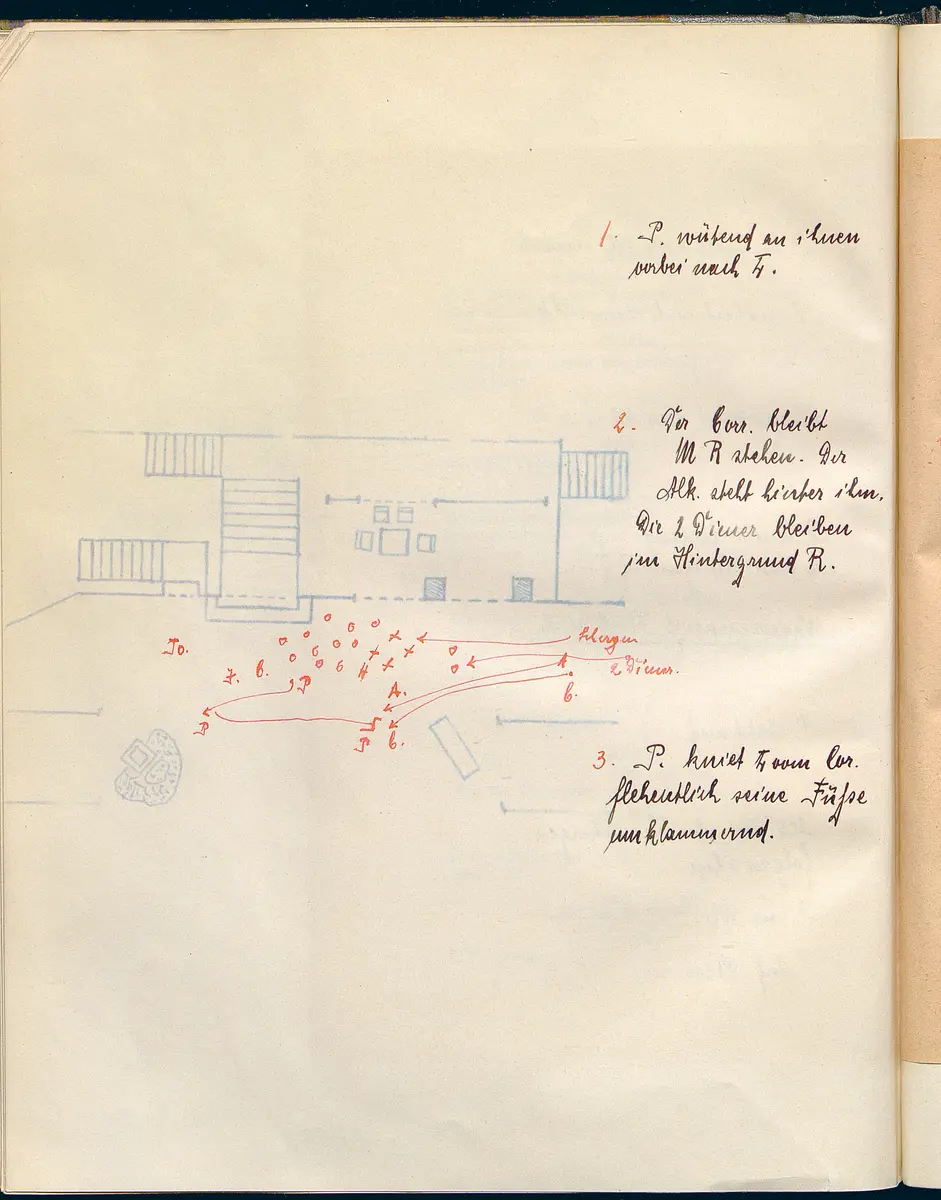 1. P. wütend an ihnen
vorbei nach L.
2. Der Corr. bleibt
M R stehen. Der
Alk. steht hinter ihm.
Die 2 Diener bleiben
im Hintergrund R.
Schergen
To. 2 Diener.
F. C. P H A. C.
P P C.
3. P. kniet L vom Cor.
flehentlich seine Füße
umklammernd.